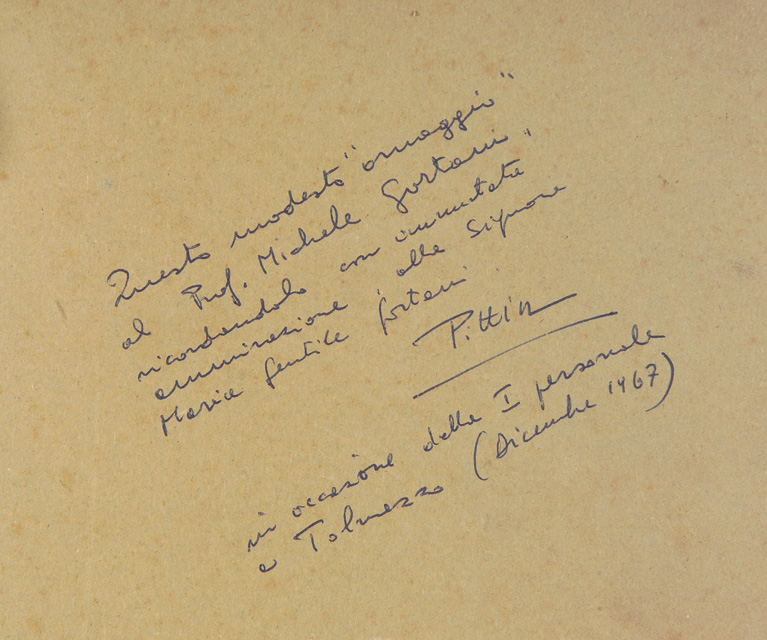 Questo modesto "omaggio"
al Prof. Michele Gortani,
ricordandolo con immutata
ammirazione, alla Signora
Maria Gentile Gortani.
Pittin
in occasione della I personale
a Tolmezzo (Dicembre 1967)